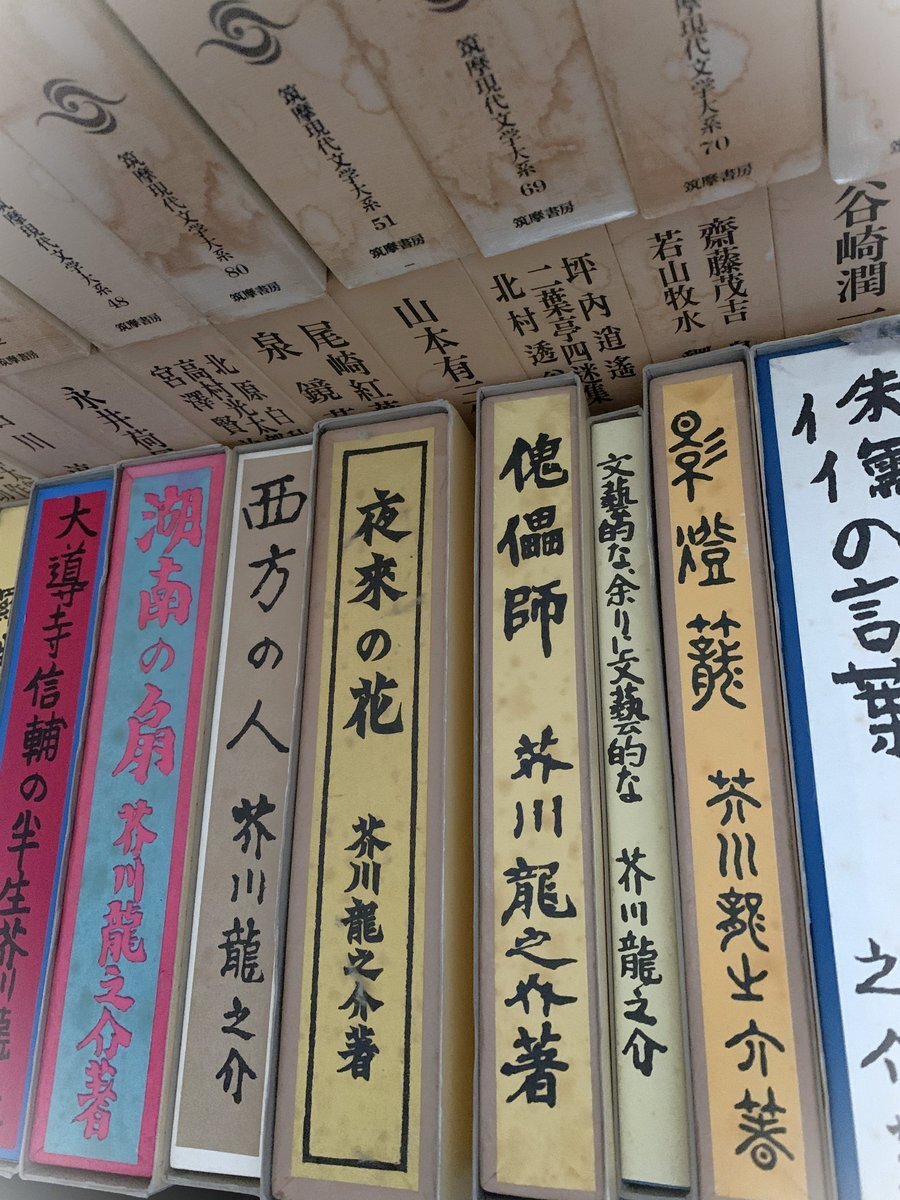 摩現代文学大系 48
筑摩書房
筑摩現代文学大系 80
筑摩書房
筑摩現代文学大系 51
筑摩書房
筑摩現代文学大系 69
筑摩書房
摩現代文学大系 70
筑摩書房
川
永井荷
北原白
高村光太
宮澤賢
尾崎紅
泉鏡
山本有
坪内逍遙
二葉亭四迷集
北村透
齋藤茂吉
若山牧水
谷崎潤一
大導寺信輔の半生 芥川龍
湖南の扇 芥川龍之介著
西方の人 芥川龍之介
夜來の花 芥川龍之介著
傀儡師 芥川龍之介著
文藝的な、余りに文藝的な 芥川龍之介
影燈籠 芥川龍之介著
侏儒の言葉
之介